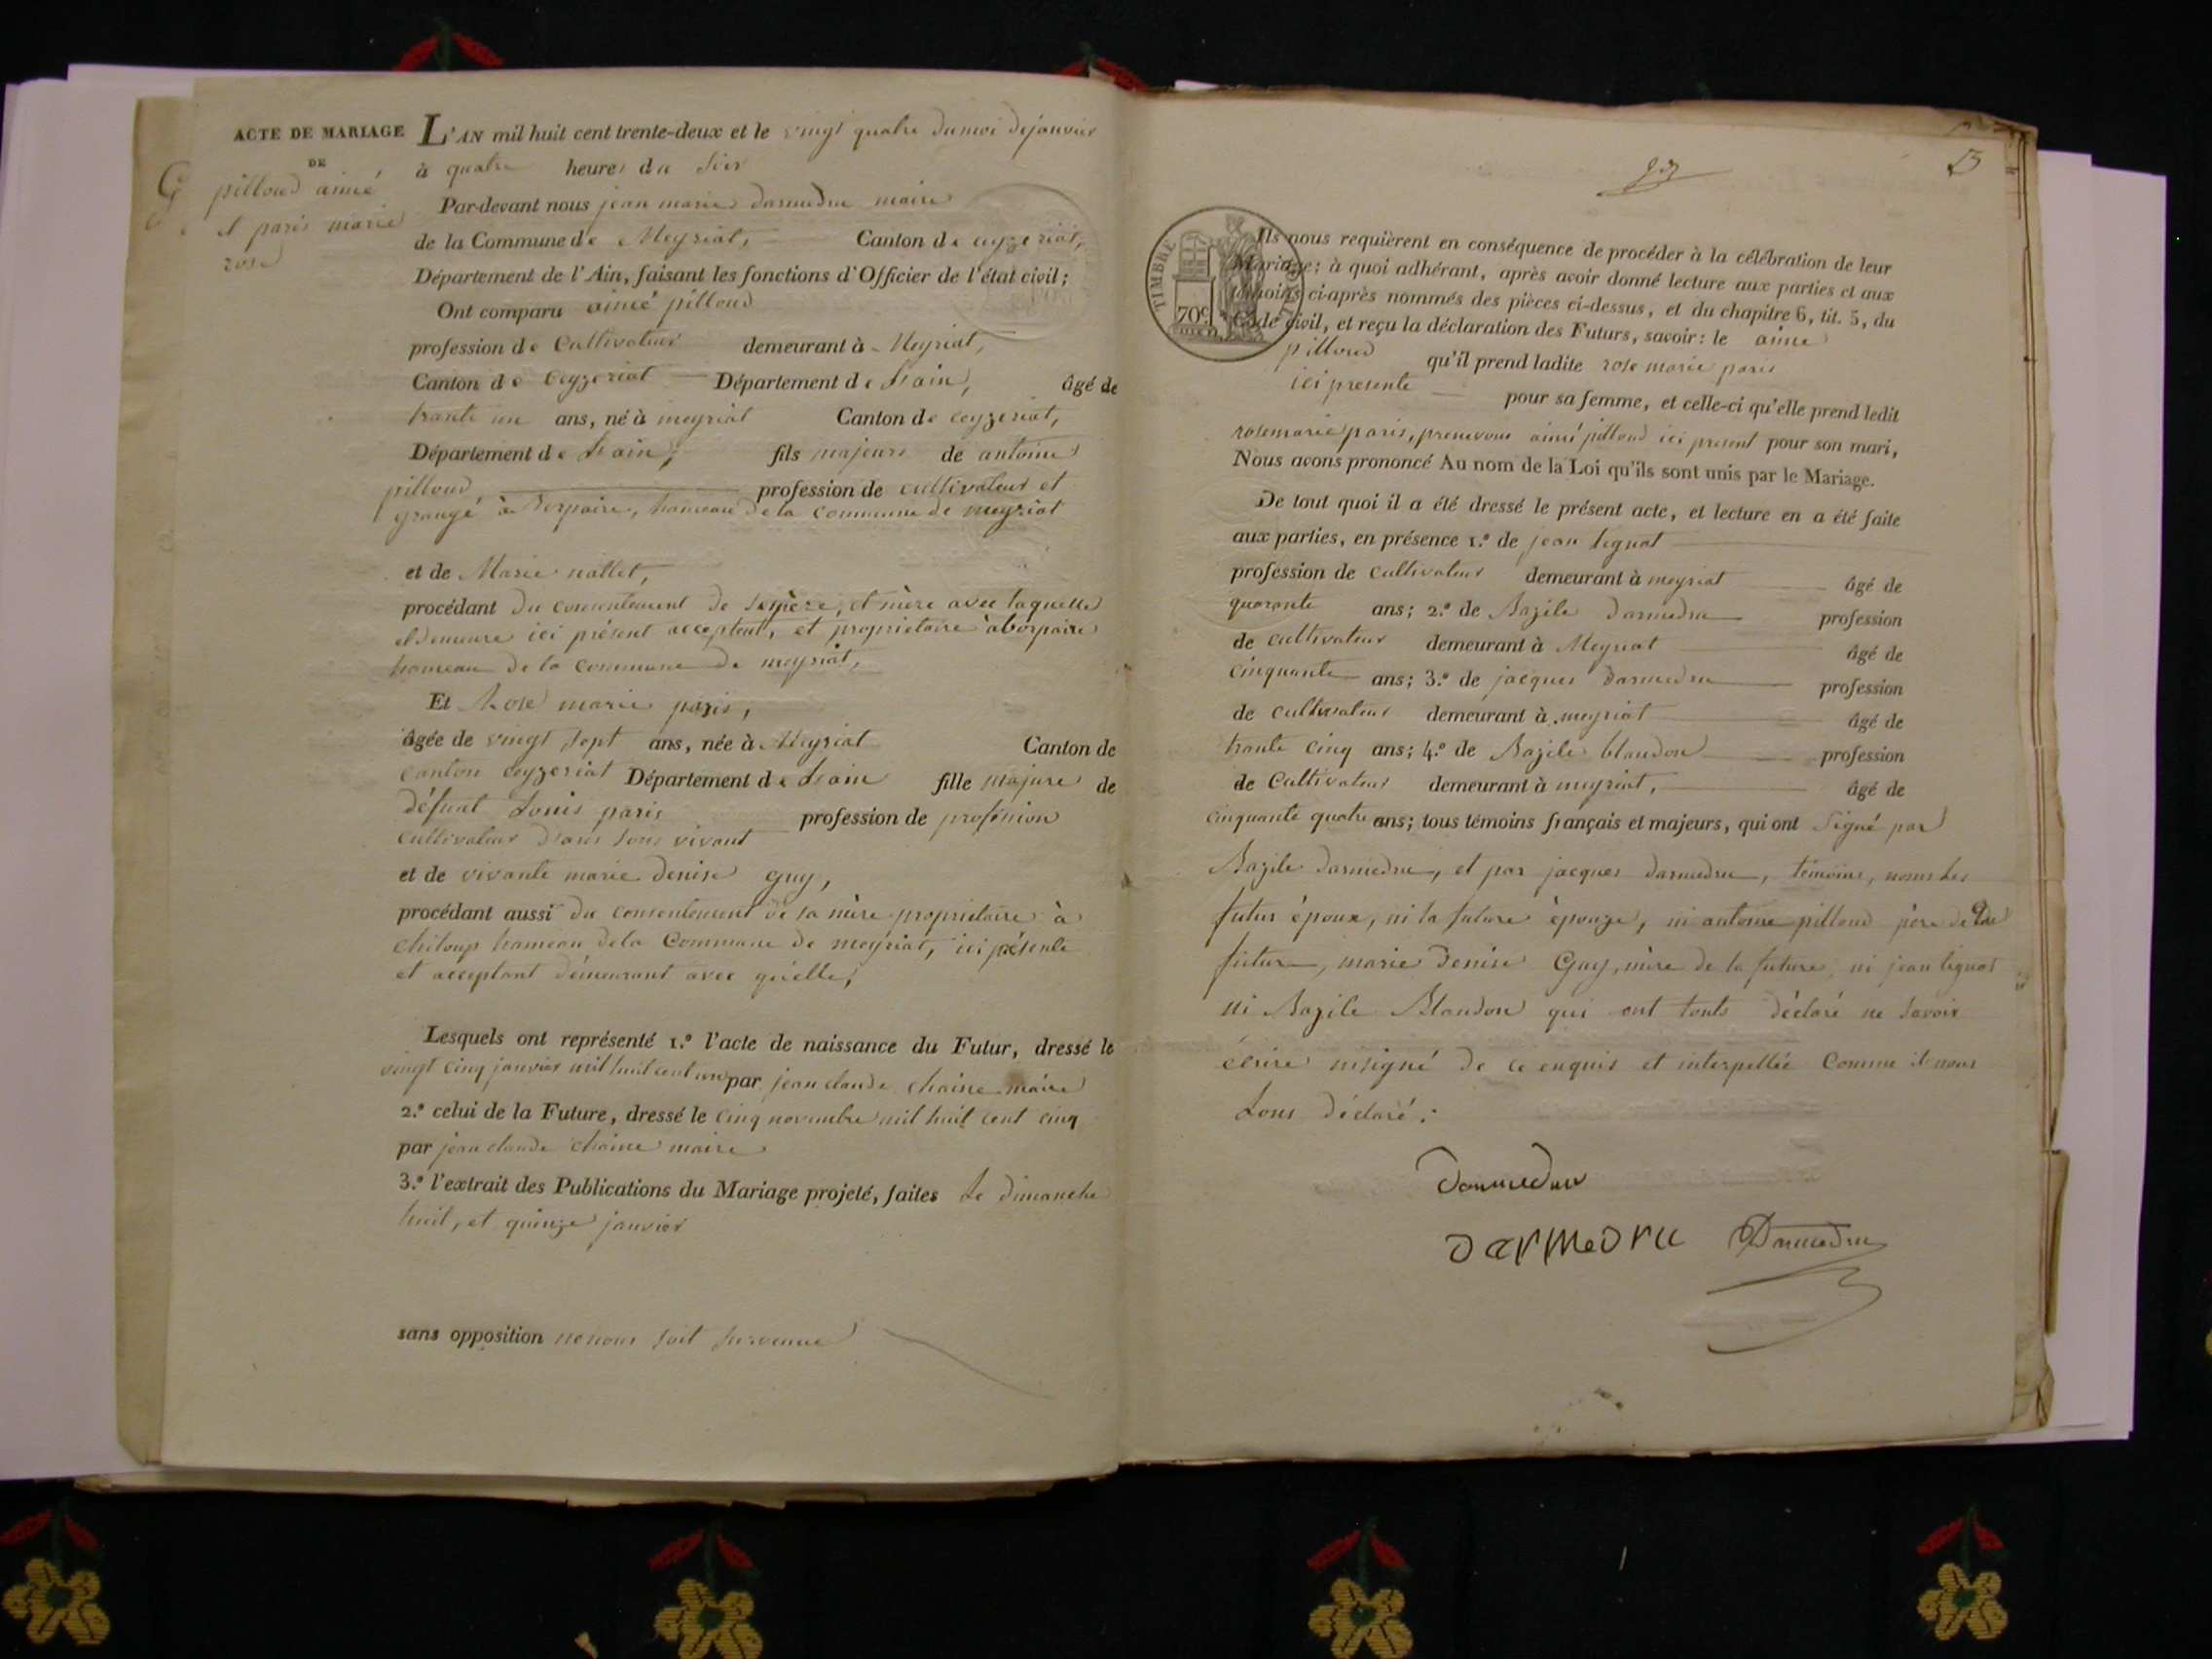 ACTE DE MARIAGE
DE
pilloud aimé
et paris marie
rose
L'AN mil huit cent trente-deux et le vingt quatre du moi de janvier
à quatre heures du soir
Par-devant nous jean marie darmedru maire
de la Commune de Meyriat, Canton de ceyzeriat,
Département de l'Ain, faisant les fonctions d'Officier de l'état civil;
Ont comparu aimé pilloud
profession de Cultivateur demeurant à Meyriat,
Canton de Ceyzeriat Département de L'ain, âgé de
trante un ans, né à meyriat Canton de ceyzeriat,
Département de L'ain, fils majeure de antoine
pilloud profession de cultivateur et
grangé à hameau de la commune de meyriat
et de Marie nallet,
procédant du consentement de père, et mère avec laquelle
il demeure ici présent acceptent, et propriétaire
hameau de la commune de meyriat,
Et Rose marie paris,
âgée de vingt sept ans, née à Meyriat Canton de
canton ceyzeriat Département de L'ain fille majure de
défunt Louis paris profession de profesion
cultivateur dans sont vivant
et de vivante marie denise guy,
procédant aussi du consentement de sa mère propriétaire à
chiloup hameau de la Commune de meyriat, ici présente
et acceptant démeurant avec qu'elle,
Lesquels ont représenté 1.º l'acte de naissance du Futur, dressé le
vingt cinq janvier mil huit cent un par jean claude chaine maire
2.º celui de la Future, dressé le cinq novembre mil huit cent cinq
par jean claude chaine maire
3.º l'extrait des Publications du Mariage projeté, faites Le dimanche
huit, et quinze janvier
sans opposition ne nous soit survenue
13
TIMBRE
70c.
Ils nous requièrent en conséquence de procéder à la célébration de leur
Mariage; à quoi adhérant, après avoir donné lecture aux parties et aux
témoins ci-après nommés des pièces ci-dessus, et du chapitre 6, tit. 5, du
Code civil, et reçu la déclaration des Futurs, savoir: le aimé
pilloud qu'il prend ladite rose marie paris
ici presente pour sa femme, et celle-ci qu'elle prend ledit
rosemarie paris, prenevous aimé pilloud ici present pour son mari,
Nous avons prononcé Au nom de la Loi qu'ils sont unis par le Mariage.
De tout quoi il a été dressé le présent acte, et lecture en a été faite
aux parties, en présence 1.º de jean tignat
profession de cultivateur demeurant à meyriat âgé de
quarante ans; 2.º de Bazile darmedru profession
de cultivateur demeurant à Meyriat âgé de
cinquante ans; 3.º de jacques Darmedru profession
de cultivateur demeurant à meyriat âgé de
trante cinq ans; 4.º de Bazile blandon profession
de Cultivateur demeurant à meyriat, âgé de
cinquante quatre ans; tous témoins français et majeurs, qui ont Signé par
Bazile darmedru, et par jacques darmedru, témoins, nons les
futur époux, ni la future épouze, ni antoine pilloud père de
futur, marie Denise Guy, mère de la future, ni jean tignat
ni Bazile Blandon qui ont touts déclaré ne savoir
écrire nisigné de ce enquis et interpellée Comme il nous
Lons déclaré.
Darmedru
DarMeDru Darmedru